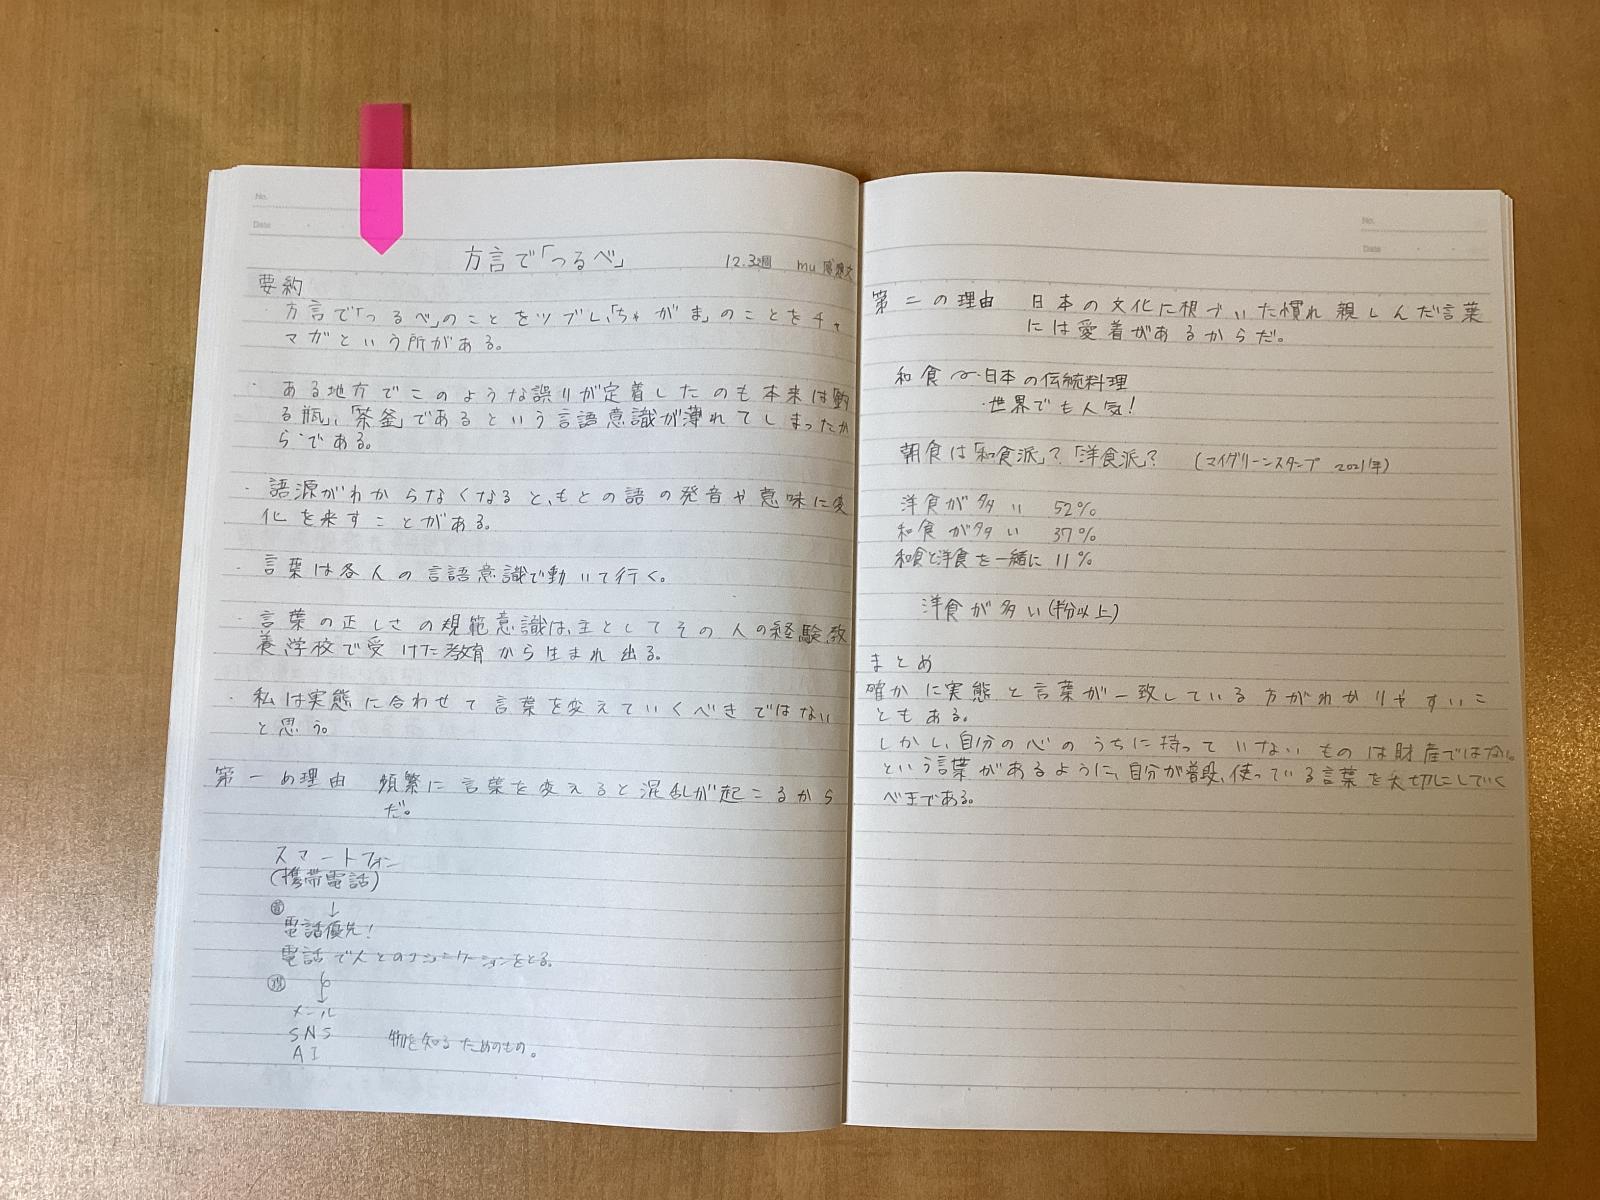 No.
Date
方言で「つるべ」
12.3週 mu 感想文
要約
方言で「つるべ」のことをツブレ、「ちゃがま」のことをチャ
マガという所がある。
・ある地方でこのような誤りが定着したのも本来は「釣
る瓶」、「茶釜」であるという言語意識が薄れてしまったか
らである。
・語源がわからなくなると、もとの語の発音や意味に変
化を来すことがある。
・言葉は各人の言語意識で動いて行く。
・言葉の正しさの規範意識は、主としてその人の経験、教
養、学校で受けた教育から生まれ出る。
・私は実態に合わせて言葉を変えていくべきではない
と思う。
第一の理由 頻繁に言葉を変えると混乱が起こるから
だ。
スマートフォン
(携帯電話)
昔 ↓
電話優先!
電話で人とのコミュニケーションをとる。
現 ↓
メール
SNS
AI 物を知るためのもの。
No.
Date
第二の理由 日本の文化に根づいた慣れ親しんだ言葉
には愛着があるからだ。
和食 ・日本の伝統料理
・世界でも人気!
朝食は「和食派」?「洋食派」? (マイグリーンスタンプ 2021年)
洋食が多い 52%
和食が多い 37%
和食と洋食を一緒に 11%
洋食が多い(半分以上)
まとめ
確かに実態と言葉が一致している方がわかりやすいこ
ともある。
しかし、自分の心のうちに持っていないものは財産ではない。
という言葉があるように、自分が普段、使っている言葉を大切にしていく
べきである。